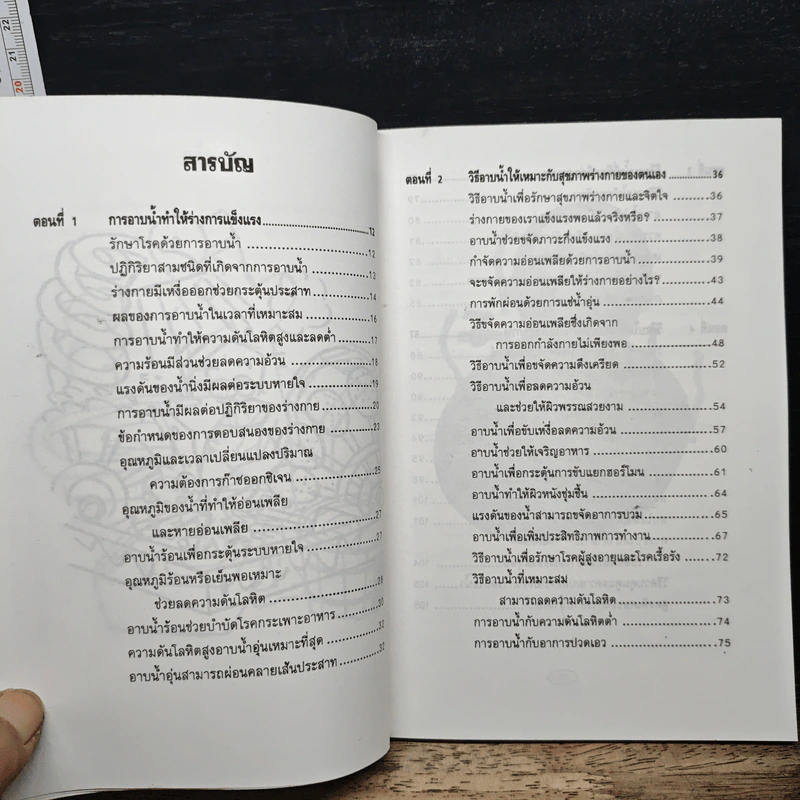 22
21
20
สารบัญ
ตอนที่ 1 การอาบน้ำทำให้ร่างการแข็งแรง 12
รักษาโรคด้วยการอาบน้ำ 12
ปฏิกิริยาสามชนิดที่เกิดจากการอาบน้ำ 13
ร่างกายมีเหงื่อออกช่วยกระตุ้นประสาท 14
ผลของการอาบน้ำในเวลาที่เหมาะสม 16
การอาบน้ำทำให้ความดันโลหิตสูงและลดต่ำ 17
ความร้อนมีส่วนช่วยลดความอ้วน 18
แรงดันของน้ำนิ่งมีผลต่อระบบหายใจ 19
การอาบน้ำมีผลต่อปฏิกิริยาของร่างกาย 20
ข้อกำหนดของการตอบสนองของร่างกาย 23
อุณหภูมิและเวลาเปลี่ยนแปลงปริมาณ
ความต้องการก๊าชออกซิเจน 25
อุณหภูมิของน้ำที่ทำให้อ่อนเพลีย
และหายอ่อนเพลีย 27
อาบน้ำร้อนเพื่อกระตุ้นระบบหายใจ 27
อุณหภูมิร้อนหรือเย็นพอเหมาะ
ช่วยลดความดันโลหิต 28
อาบน้ำร้อนช่วยบำบัดโรคกระเพาะอาหาร 30
ความดันโลหิตสูงอาบน้ำอุ่นเหมาะที่สุด 32
อาบน้ำอุ่นสามารถผ่อนคลายเส้นประสาท 32
ตอนที่ 2 วิธีอาบน้ำให้เหมาะกับสุขภาพร่างกายของตนเอง 36
วิธีอาบน้ำเพื่อรักษาสุขภาพร่างกายและจิตใจ 36
ร่างกายของเราแข็งแรงพอแล้วจริงหรือ? 37
อาบน้ำช่วยขจัดภาวะกึ่งแข็งแรง 38
กำจัดความอ่อนเพลียด้วยการอาบน้ำ 39
จะขจัดความอ่อนเพลียให้ร่างกายอย่างไร? 43
การพักผ่อนด้วยการแช่น้ำอุ่น 44
วิธีขจัดความอ่อนเพลียซึ่งเกิดจาก
การออกกำลังกายไม่เพียงพอ 48
วิธีอาบน้ำเพื่อขจัดความตึงเครียด 52
วิธีอาบน้ำเพื่อลดความอ้วน
และช่วยให้ผิวพรรณสวยงาม 54
อาบน้ำเพื่อขับเหงื่อลดความอ้วน 57
อาบน้ำช่วยให้เจริญอาหาร 60
อาบน้ำเพื่อกระตุ้นการขับแยกฮอร์โมน 61
อาบน้ำทำให้ผิวหนังชุ่มชื้น 64
แรงดันของน้ำสามารถขจัดอาการบวม 65
อาบน้ำเพื่อเพิ่มประสิทธิภาพการทำงาน 67
วิธีอาบน้ำเพื่อรักษาโรคผู้สูงอายุและโรคเรื้อรัง 72
วิธีอาบน้ำที่เหมาะสม
สามารถลดความดันโลหิต 73
การอาบน้ำกับความดันโลหิตต่ำ 74
การอาบน้ำกับอาการปวดเอว 75